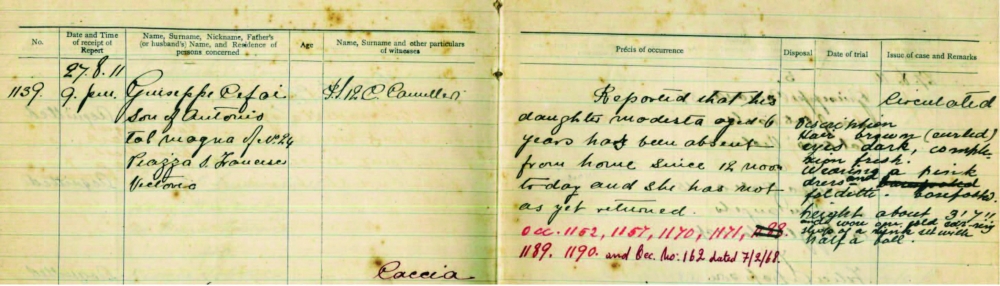 No.
Date and Time of receipt of Report
Name, Surname, Nickname, Father's (or husband's) Name, and Residence of persons concerned
Age
Name, Surname and other particulars of witnesses
Précis of occurrence
Disposal
Date of trial
Issue of case and Remarks
27.8.11
1139.
9. pm.
Giuseppe Refai
Son of Antonio
Tal magna No 24
Piazza S. Francesco
Victoria
P.S. 12 C. Camilleri
Reported that his
daughter modesta aged 6
years has been absent
from home since 12 noon
today and she has not
as yet returned.
Occ. 1152, 1157, 1170, 1171, 1188.
1189. 1190. and Occ. No. 162 dated 7/2/68.
Caccia
Circulated
Description
Hair brown (curled)
eyes dark, comple-
xion fresh.
wearing a pink
dress and
height about 3'7"
and wore one gold ear-ring
of a pink set with
half a ball.